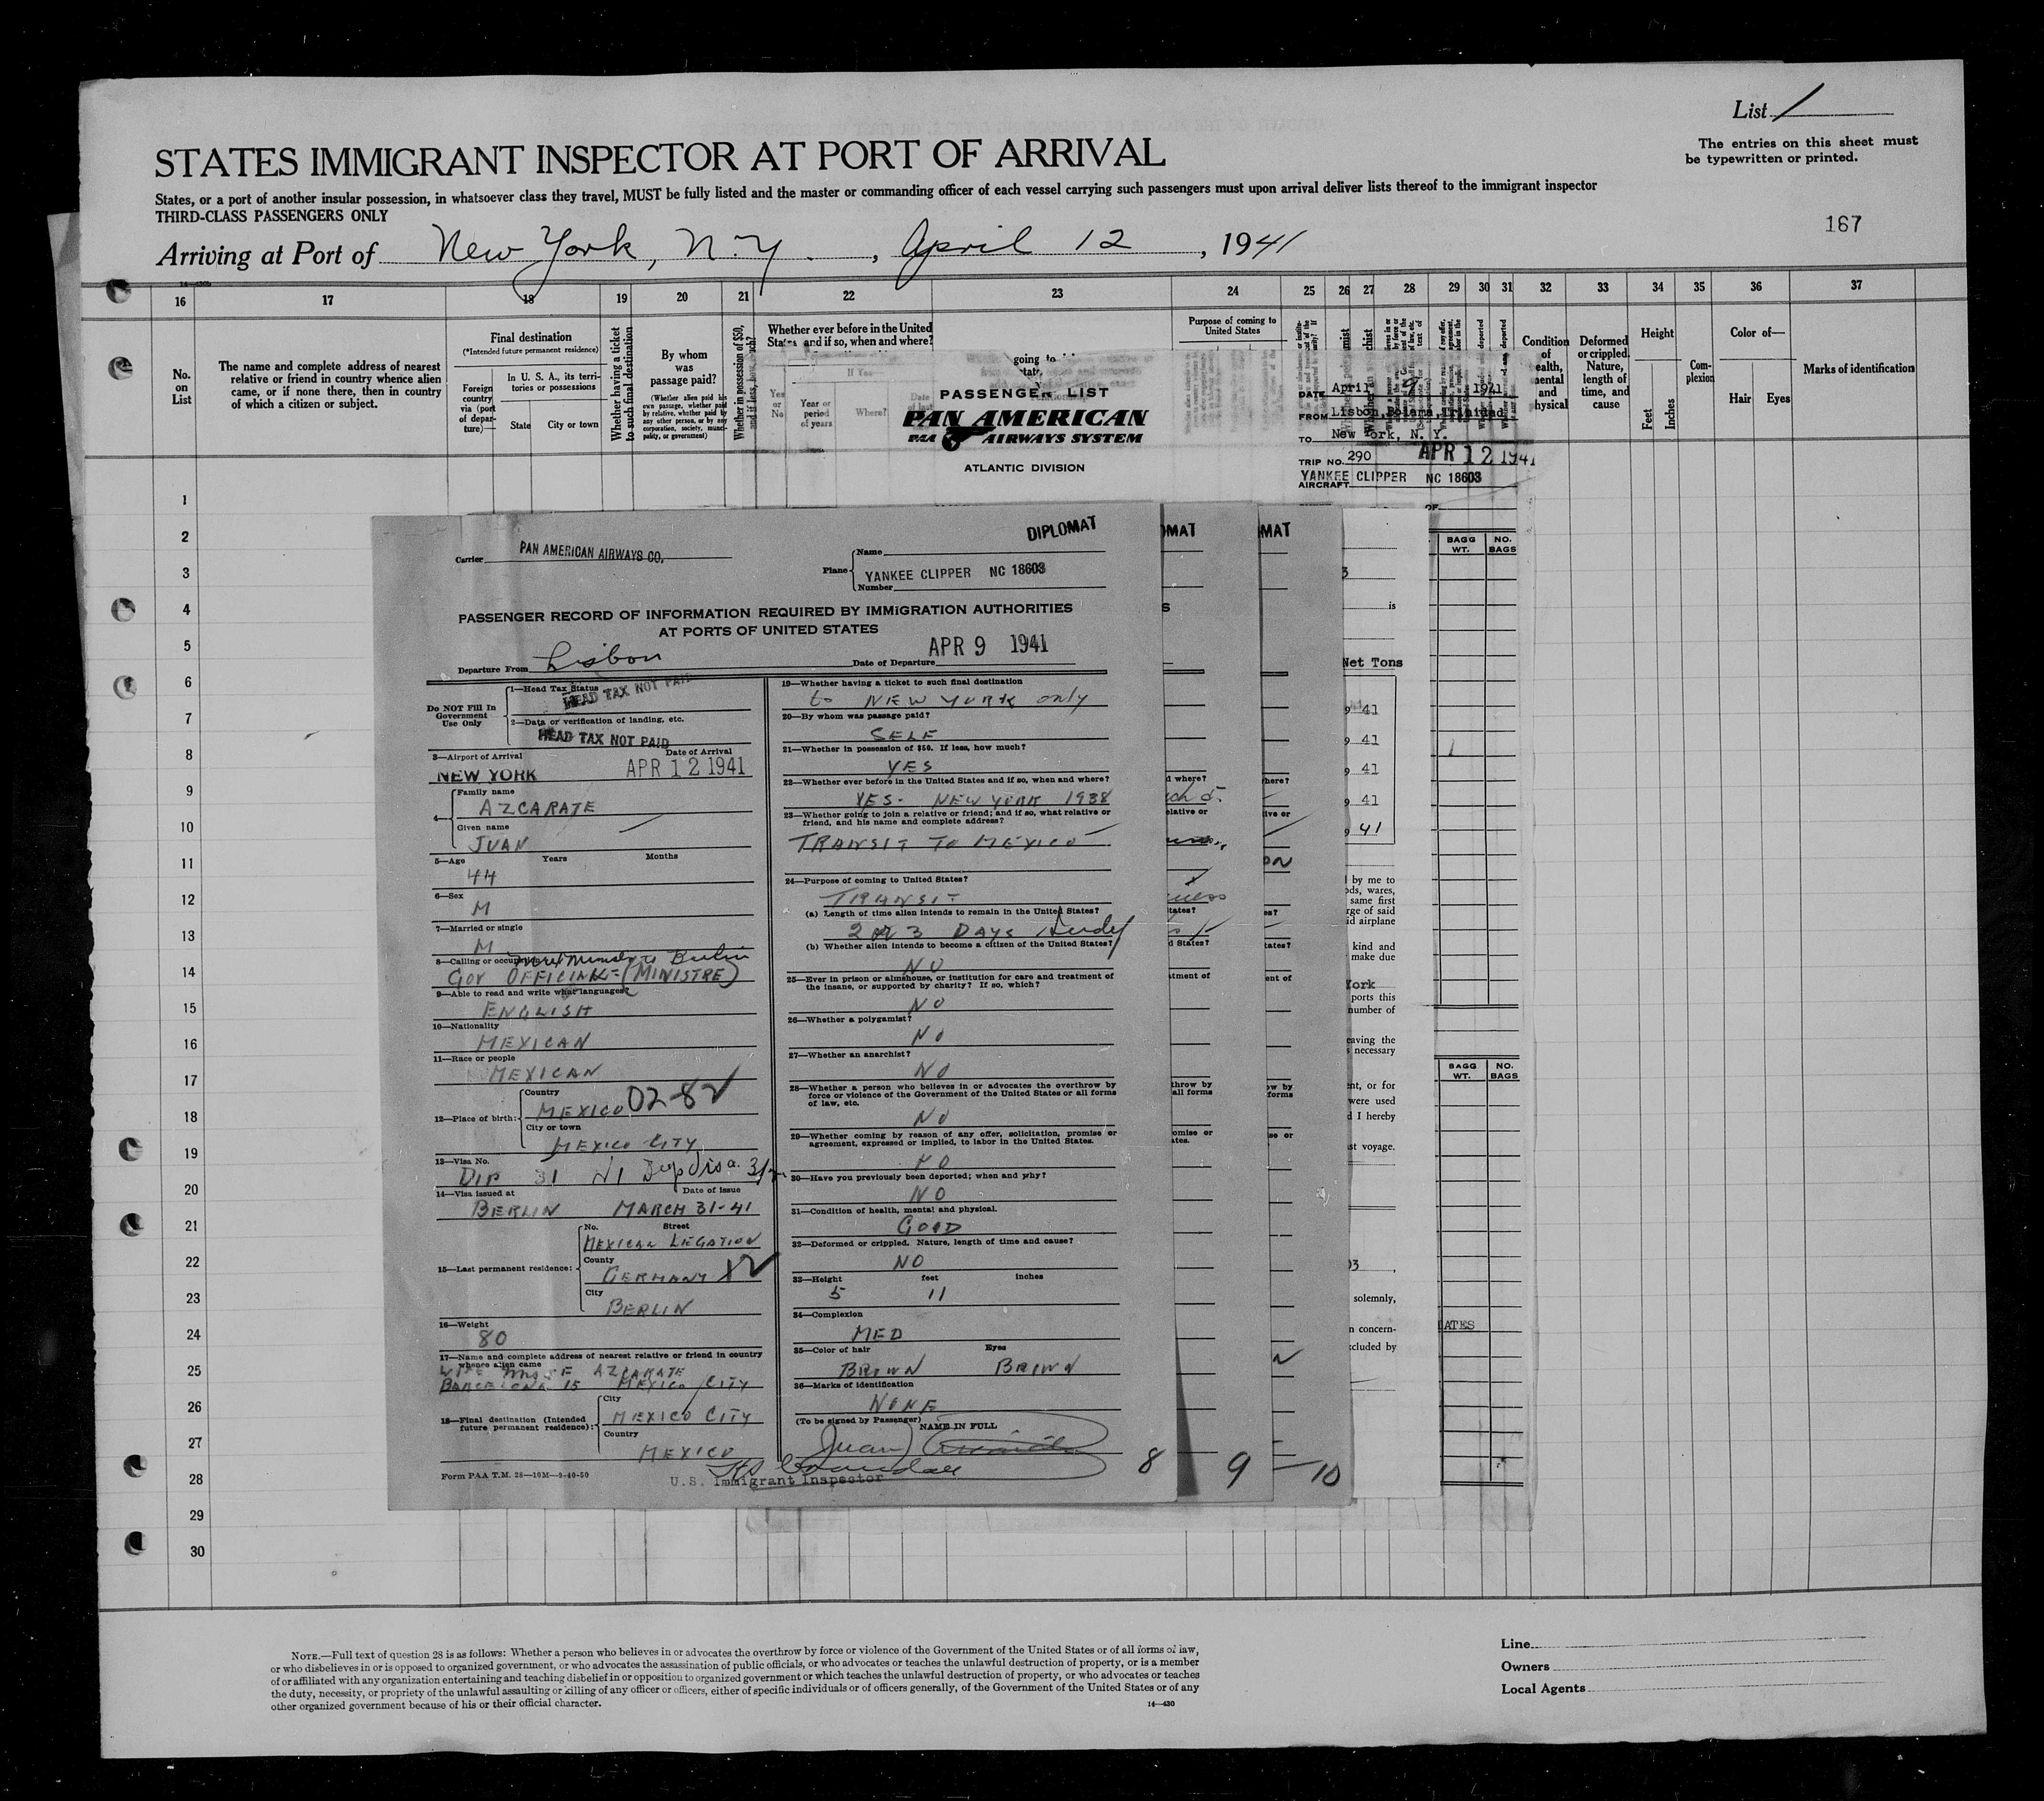 List /
The entries on this sheet must
be typewritten or printed.
STATES IMMIGRANT INSPECTOR AT PORT OF ARRIVAL
States, or a port of another insular possession, in whatsoever class they travel, MUST be fully listed and the master or commanding officer of each vessel carrying such passengers must upon arrival deliver lists thereof to the immigrant inspector
THIRD-CLASS PASSENGERS ONLY
167
Arriving at Port of New York, N.Y., April 12, 1941
16 17 18 19 20 21 22 23 24 25 26 27 28 29 30 31 32 33 34 35 36 37
No.
on
List
The name and complete address of nearest
relative or friend in country whence alien
came, or if none there, then in country
of which a citizen or subject.
Final destination
(*Intended future permanent residence)
Foreign
country
via (port
of depar-
ture)—
In U. S. A., its terri-
tories or possessions
State City or town
Whether having a ticket
to such final destination
By whom
was
passage paid?
(Whether alien paid his
own passage, whether paid
by relative, whether paid by
any other person, or by any
corporation, society, munici-
pality, or government)
Whether in possession of $50,
Whether ever before in the United
States and if so, when and where?
If Yes—
Yes
or
No
Year or
period
of years
Where?
Purpose of coming to
United States
Condition
of
health,
mental
and
physical
Deformed
or crippled.
Nature,
length of
time, and
cause
Height
Feet Inches
Com-
plexion
Color of—
Hair Eyes
Marks of identification
PASSENGER LIST
PAN AMERICAN
PAA AIRWAYS SYSTEM
ATLANTIC DIVISION
DATE April 9 1941
FROM Lisbon, Bolama, Trinidad
TO New York, N. Y.
TRIP NO. 290 APR 12 1941
AIRCRAFT YANKEE CLIPPER NC 18603
1
2
3
4
5
6
7
8
9
10
11
12
13
14
15
16
17
18
19
20
21
22
23
24
25
26
27
28
29
30
DIPLOMAT
Carrier PAN AMERICAN AIRWAYS CO.
Plane Name
YANKEE CLIPPER NC 18603
Number
PASSENGER RECORD OF INFORMATION REQUIRED BY IMMIGRATION AUTHORITIES
AT PORTS OF UNITED STATES
Departure From Lisbon Date of Departure APR 9 1941
Do NOT Fill In
Government
Use Only
1—Head Tax Status
HEAD TAX NOT PAID
2—Data or verification of landing, etc.
HEAD TAX NOT PAID
3—Airport of Arrival Date of Arrival
NEW YORK APR 12 1941
4— Family name
AZCARATE
Given name
JUAN
5—Age Years Months
44
6—Sex
M
7—Married or single
M
8—Calling or occupation
GOV OFFICIAL = (MINISTRE)
9—Able to read and write what languages
ENGLISH
10—Nationality
MEXICAN
11—Race or people
MEXICAN
12—Place of birth: Country
MEXICO 02-82
City or town
MEXICO CITY
13—Visa No.
DIP 31
14—Visa issued at Date of issue
BERLIN MARCH 31-41
15—Last permanent residence: No. Street
MEXICAN LEGATION
County
GERMANY
City
BERLIN
16—Weight
80
17—Name and complete address of nearest relative or friend in country
whence alien came
WIFE MRS E AZCARATE
BARCELONA 15 MEXICO CITY
18—Final destination (Intended
future permanent residence): City
MEXICO CITY
Country
MEXICO
Form PAA T.M. 28—10M—9-40-50
U.S. Immigrant Inspector
19—Whether having a ticket to such final destination
to NEW YORK only
20—By whom was passage paid?
SELF
21—Whether in possession of $50. If less, how much?
YES
22—Whether ever before in the United States and if so, when and where?
YES- NEW YORK 1938
23—Whether going to join a relative or friend; and if so, what relative or
friend, and his name and complete address?
TRANSIT TO MEXICO
24—Purpose of coming to United States?
TRANSIT
(a) Length of time alien intends to remain in the United States?
2 OR 3 DAYS
(b) Whether alien intends to become a citizen of the United States?
NO
25—Ever in prison or almshouse, or institution for care and treatment of
the insane, or supported by charity? If so, which?
NO
26—Whether a polygamist?
NO
27—Whether an anarchist?
NO
28—Whether a person who believes in or advocates the overthrow by
force or violence of the Government of the United States or all forms
of law, etc.
NO
29—Whether coming by reason of any offer, solicitation, promise or
agreement, expressed or implied, to labor in the United States.
NO
30—Have you previously been deported; when and why?
NO
31—Condition of health, mental and physical.
GOOD
32—Deformed or crippled. Nature, length of time and cause?
NO
33—Height feet inches
5 11
34—Complexion
MED
35—Color of hair Eyes
BROWN BROWN
36—Marks of identification
NONE
(To be signed by Passenger)
NAME IN FULL
Juan
8 9 10
Net Tons
BAGG
WT.
NO.
BAGS
BAGG
WT.
NO.
BAGS
NOTE.—Full text of question 28 is as follows: Whether a person who believes in or advocates the overthrow by force or violence of the Government of the United States or of all forms of law,
or who disbelieves in or is opposed to organized government, or who advocates the assassination of public officials, or who advocates or teaches the unlawful destruction of property, or is a member
of or affiliated with any organization entertaining and teaching disbelief in or opposition to organized government or which teaches the unlawful destruction of property, or who advocates or teaches
the duty, necessity, or propriety of the unlawful assaulting or killing of any officer or officers, either of specific individuals or of officers generally, of the Government of the United States or of any
other organized government because of his or their official character.
14—430
Line
Owners
Local Agents